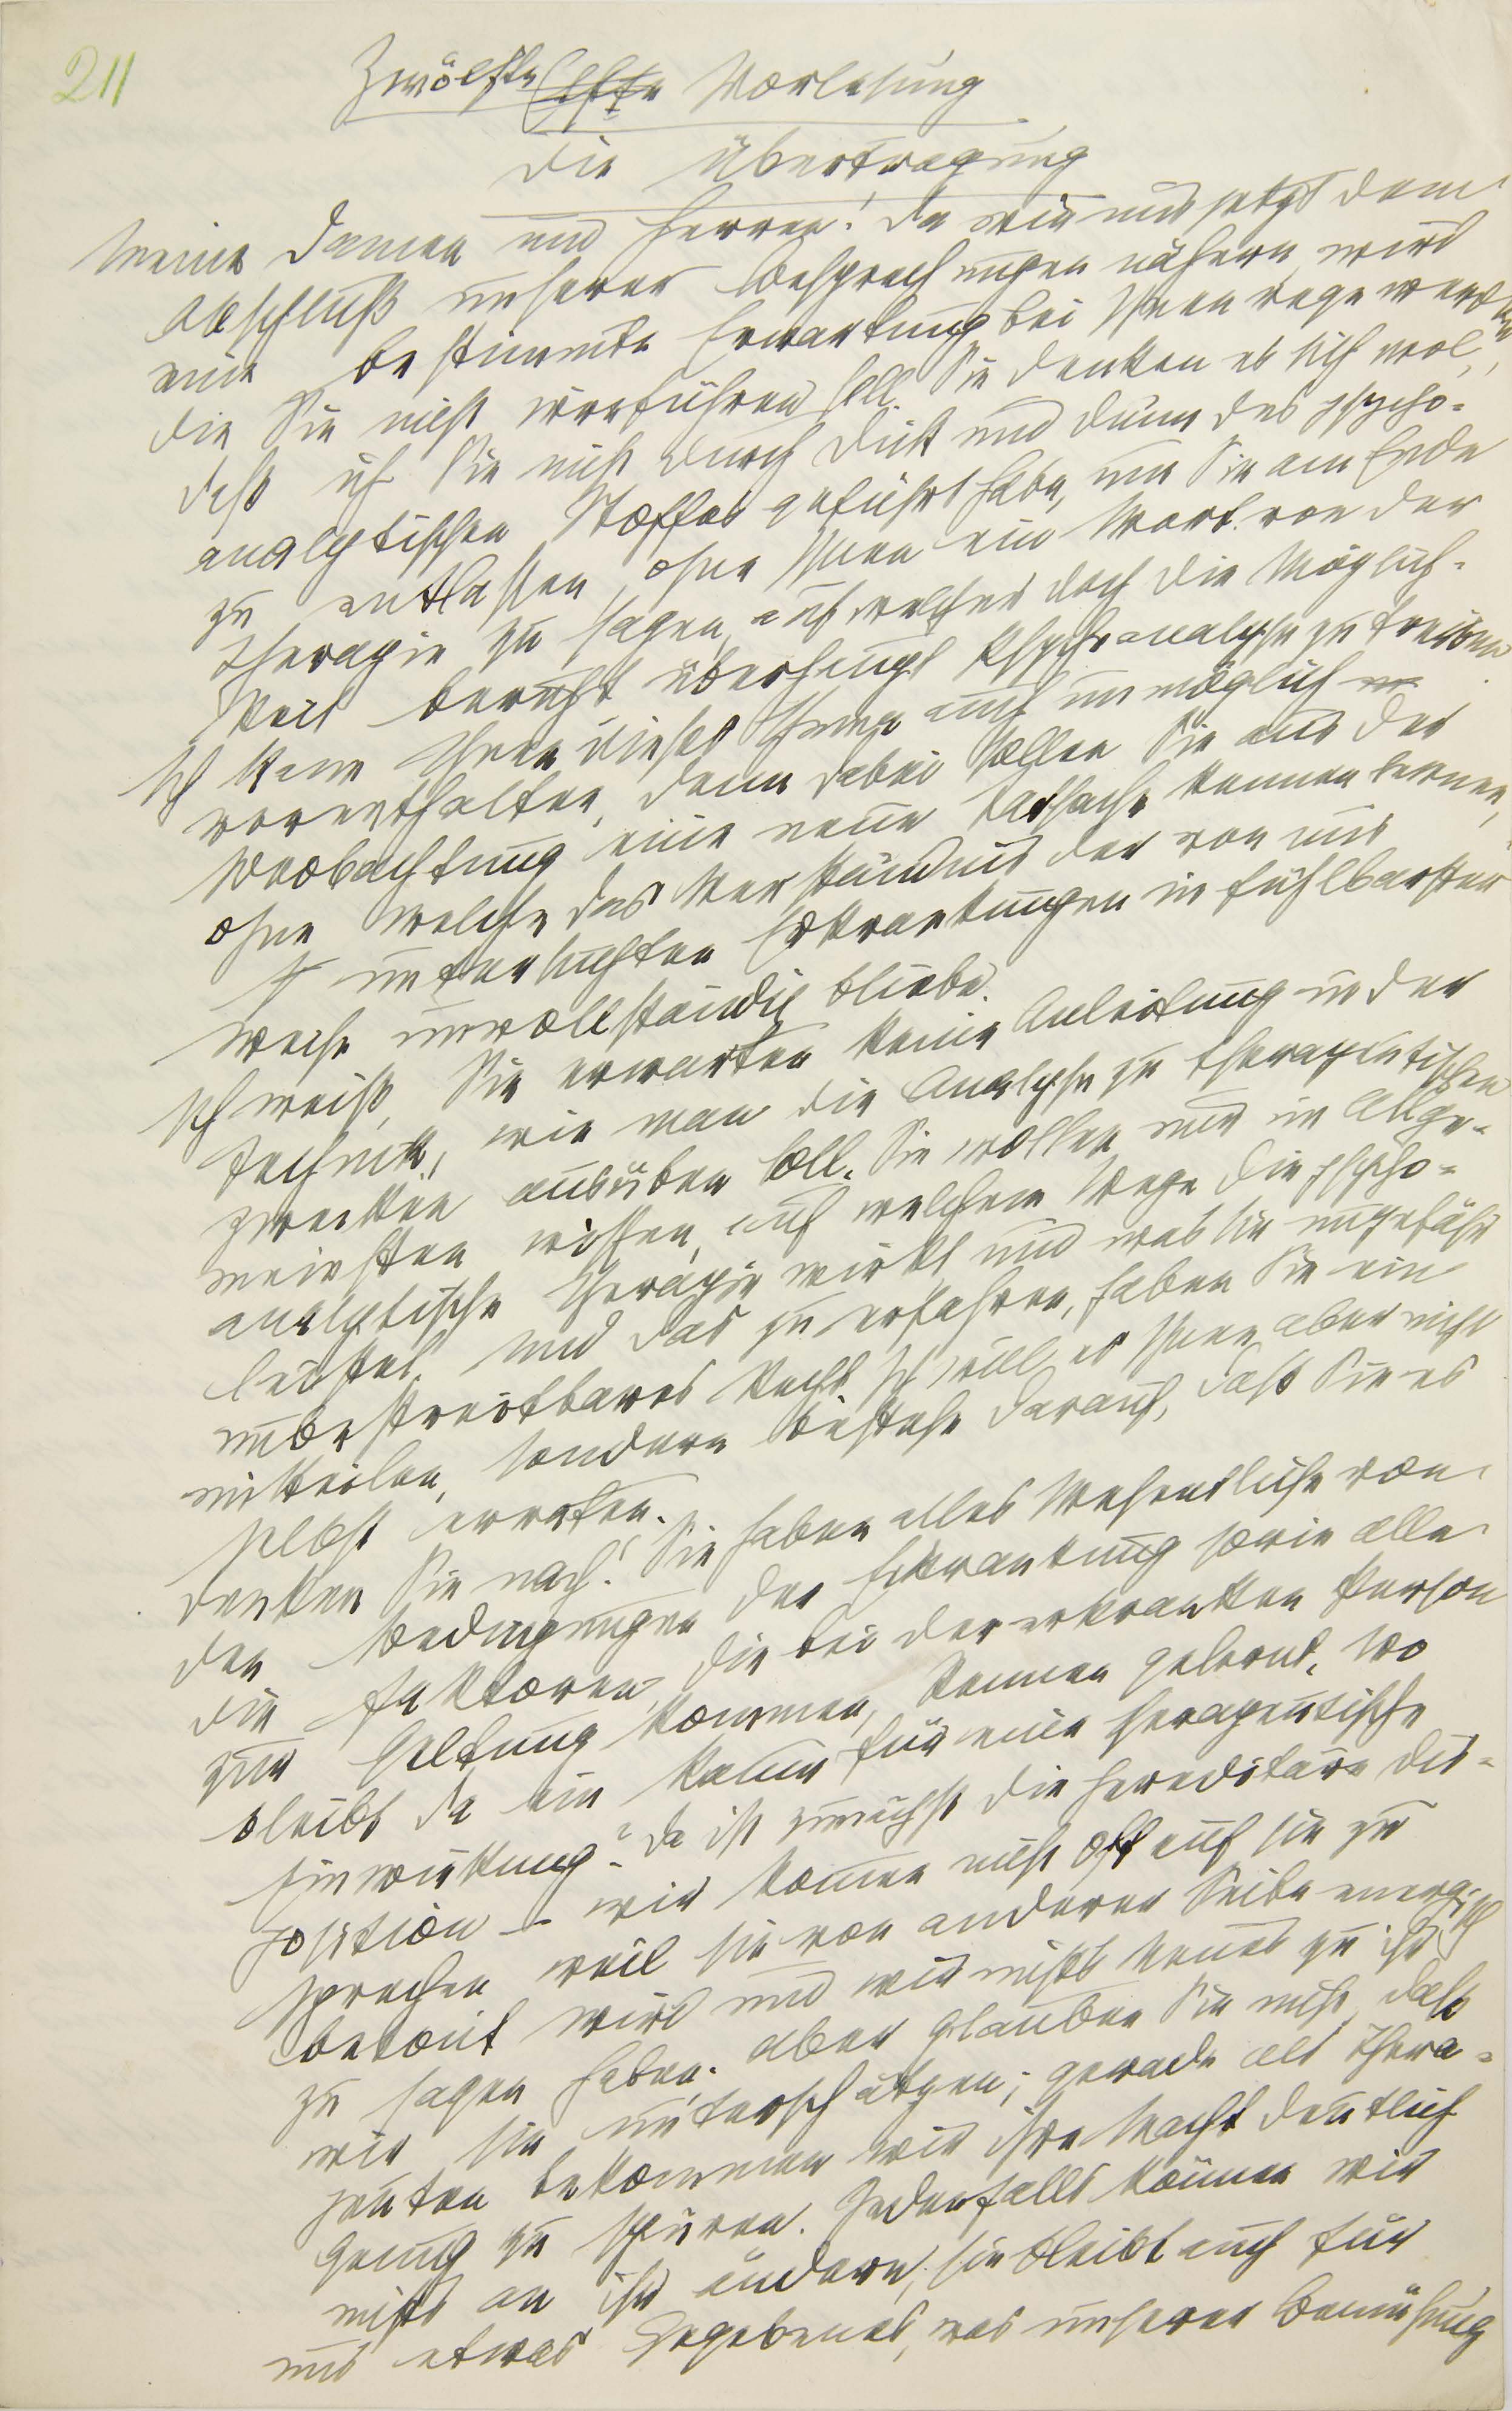 211
Zwölfte Elfte Vorlesung
Die Übertragung
Meine Damen und Herren! Da wir uns jetzt dem
Abschluß unserer Besprechungen nähern, wird
eine bestimmte Erwartung bei Ihnen rege werden,
die Sie nicht irreführen soll. Sie denken es sich wol,
daß ich Sie nicht durch Dick und Dünn des psycho-
analytischen Stoffes geführt habe, um Sie am Ende
zu entlassen, ohne Ihnen ein Wort von der
Therapie zu sagen, auf welcher doch die Möglich-
keit beruht überhaupt Psychoanalyse zu treiben.
Ich kann Ihnen dieses Thema auch unmöglich
vorenthalten, denn dabei sollen Sie aus der
Beobachtung eine neue Tatsache kennen lernen,
ohne welche das Verständnis der von uns
untersuchten Erkrankungen in fühlbarster
Weise unvollständig bliebe.
Ich weiß, Sie erwarten keine Anleitung in der
Technik, wie man die Analyse zu therapeutischen
Zwecken ausüben soll. Sie wollen nur im Allge-
meinsten wissen, auf welchem Wege die psycho-
analytische Therapie wirkt und was sie ungefähr
leistet. Und das zu erfahren, haben Sie ein
unbestreitbares Recht. Ich will es Ihnen aber nicht
mitteilen, sondern bestehe darauf, daß Sie es
selbst erraten.
Denken Sie nach! Sie haben alles Wesentliche von
den Bedingungen der Erkrankung sowie alle
die Faktoren, die bei der erkrankten Person
zur Geltung kommen, kennen gelernt. Wo
bleibt da ein Raum für eine therapeutische
Einwirkung? Da ist zunächst die hereditäre Dis-
position – wir kommen nicht oft auf sie zu
sprechen weil sie von anderer Seite energisch
betont wird und wir nichts Neues zu ihr
zu sagen haben. Aber glauben Sie nicht, daß
wir sie unterschätzen; gerade als Thera-
peuten bekommen wir ihre Macht deutlich
genug zu spüren. Jedenfalls können wir
nichts an ihr ändern; sie bleibt auch für
uns etwas Gegebenes, was unserer Bemühung